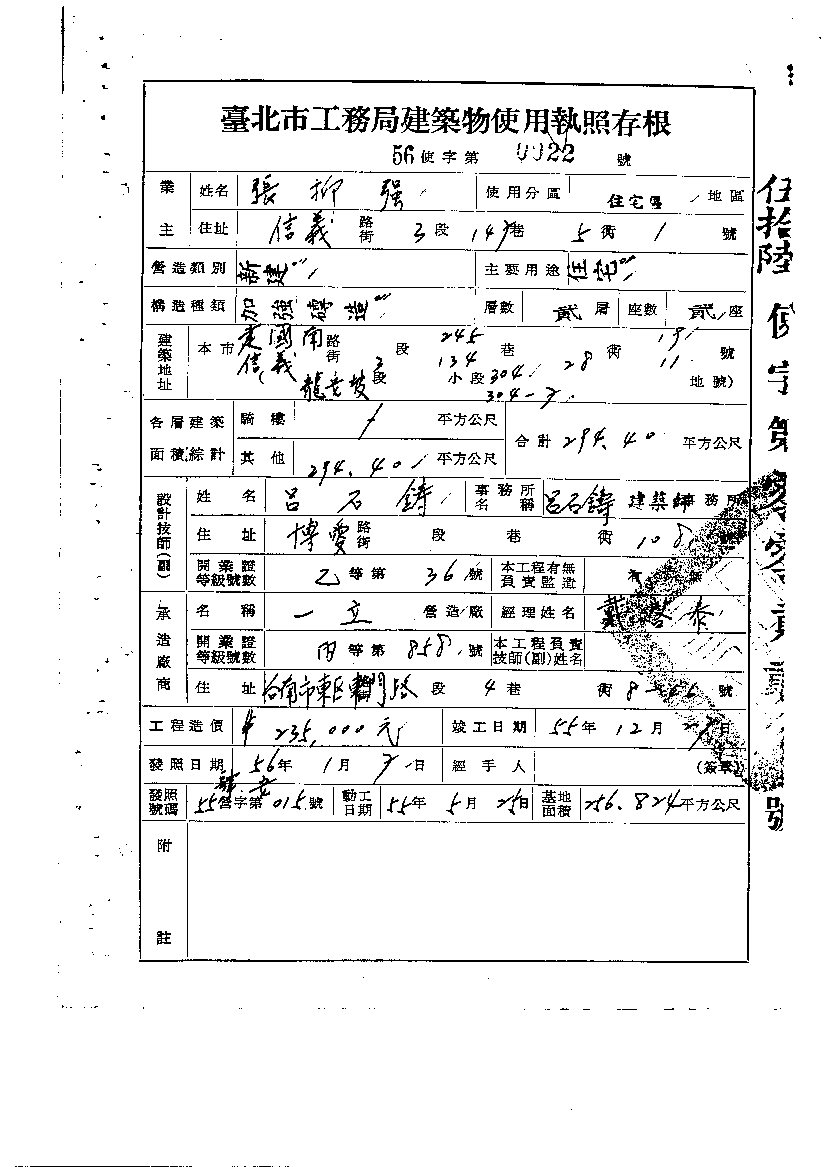 臺北市工務局建築物使用執照存根
56使字第 0022 號
業主 姓名 張柳强 使用分區 住宅區 地區
住址 信義 路街 3 段 147 巷 5 衖 1 號
營造類別 新建 主要用途 住宅
構造種類 加強磚造 層數 貳 層 座數 貳 座
建築地址 本市 建國南 信義 路街 3 段 245 134 巷 28 衖 1 9 1 11 號
龍安坡 段 小段 304 304-7 地號)
各層建築面積綜計 騎樓 / 平方公尺 合計 294.40 平方公尺
其他 294.40 平方公尺
設計技師(副) 姓名 呂石鑄 事務所名稱 呂石鑄 建築師 事務所
住址 博愛 路街 段 巷 衖 108 號
開業證等級號數 乙 等第 36 號 本工程有無負實監造 有 無
承造廠商 名稱 一立 營造廠 經理姓名 戴 泰
開業證等級號數 丙 等第 858 號 本工程負實技師(副)姓名
住址 台南市東區東門路 段 4 巷 衖 號
工程造價 $ 235,000元 竣工日期 55年 12月 27日
發照日期 56年 1月 7日 經手人 (簽章)
發照號碼 55營字第 015 號 動工日期 55年 5月 25日 基地面積 256.824 平方公尺
附註
伍拾陸使字第零零貳貳號